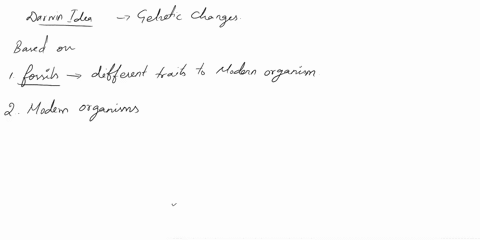 Darwin Idea → Genetic Changes.
Based on
1. fossils → different traits to Modern organism
2. Modern organisms